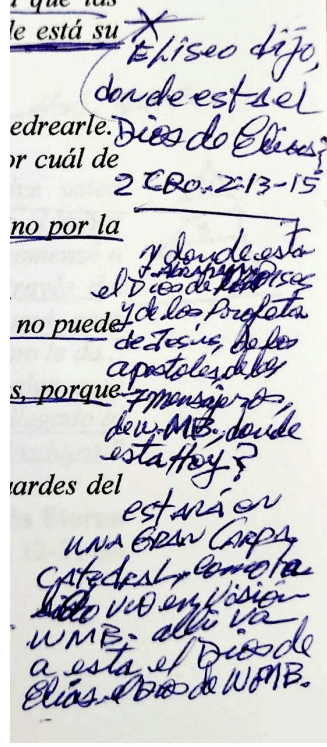 a que las
le está su
edrearle.
or cuál de
no por la
no puede
s, porque
uardes del
Eliseo dijo,
donde está el
Dios de Elías?
2 CRO. 2-13-15
y donde esta
el Dios de
y de los Profeta
de Jesús, de los
apostoles, de los
7 mensajeros,
de W.MB., donde
esta Hoy?
estará en
UNA GRAN CARPA
CATEDRAL, como la
vio en Visión
WMB. alli va
a esta el Dios de
Elías. el Dios de WMB.